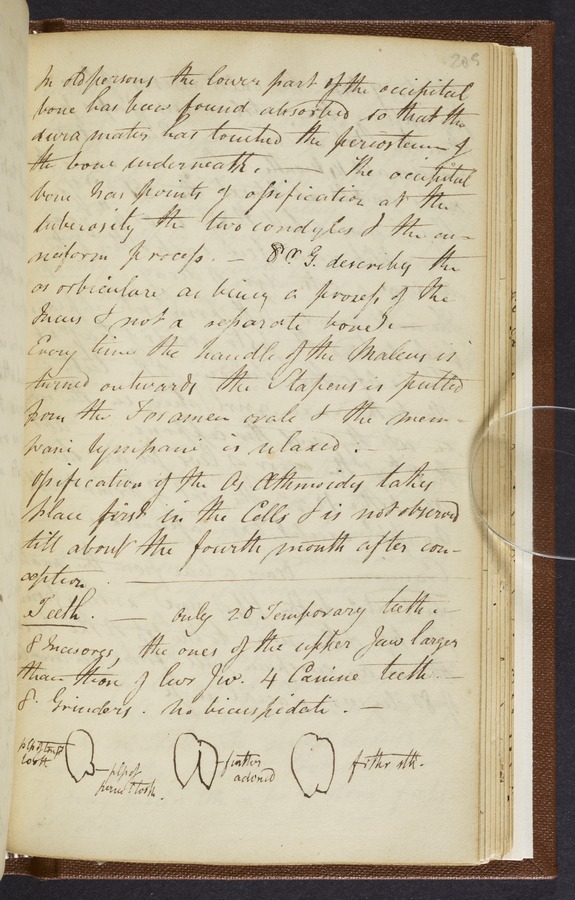 205
In old persons the lower part of the occipital
bone has been found absorbed so that the
dura mater has touched the periosteum of
the bone underneath. — The occipital
bone has points of ossification at the
tuberosity the two condyles & the cu-
neiform process. — Dr G. describes the
os orbiculare as being a process of the
Incus & not a separate bone. —
Every time the handle of the Maleus is
turned outwards the Stapens is pulled
from the Foramen ovale & the mem-
brani tympani is relaxed. —
Ossification of the Os Æthmoides takes
place first in the Cells & is not observed
till about the fourth month after con-
ception.
Teeth. — only 20 Temporary teeth. —
8 Incisors, the ones of the upper Jaw larger
than those of lwr Jw. 4 Canine teeth —
8. Grinders. no bicuspidati. —
plp of temp
tooth
plp of
perm t tooth.
further
advncd